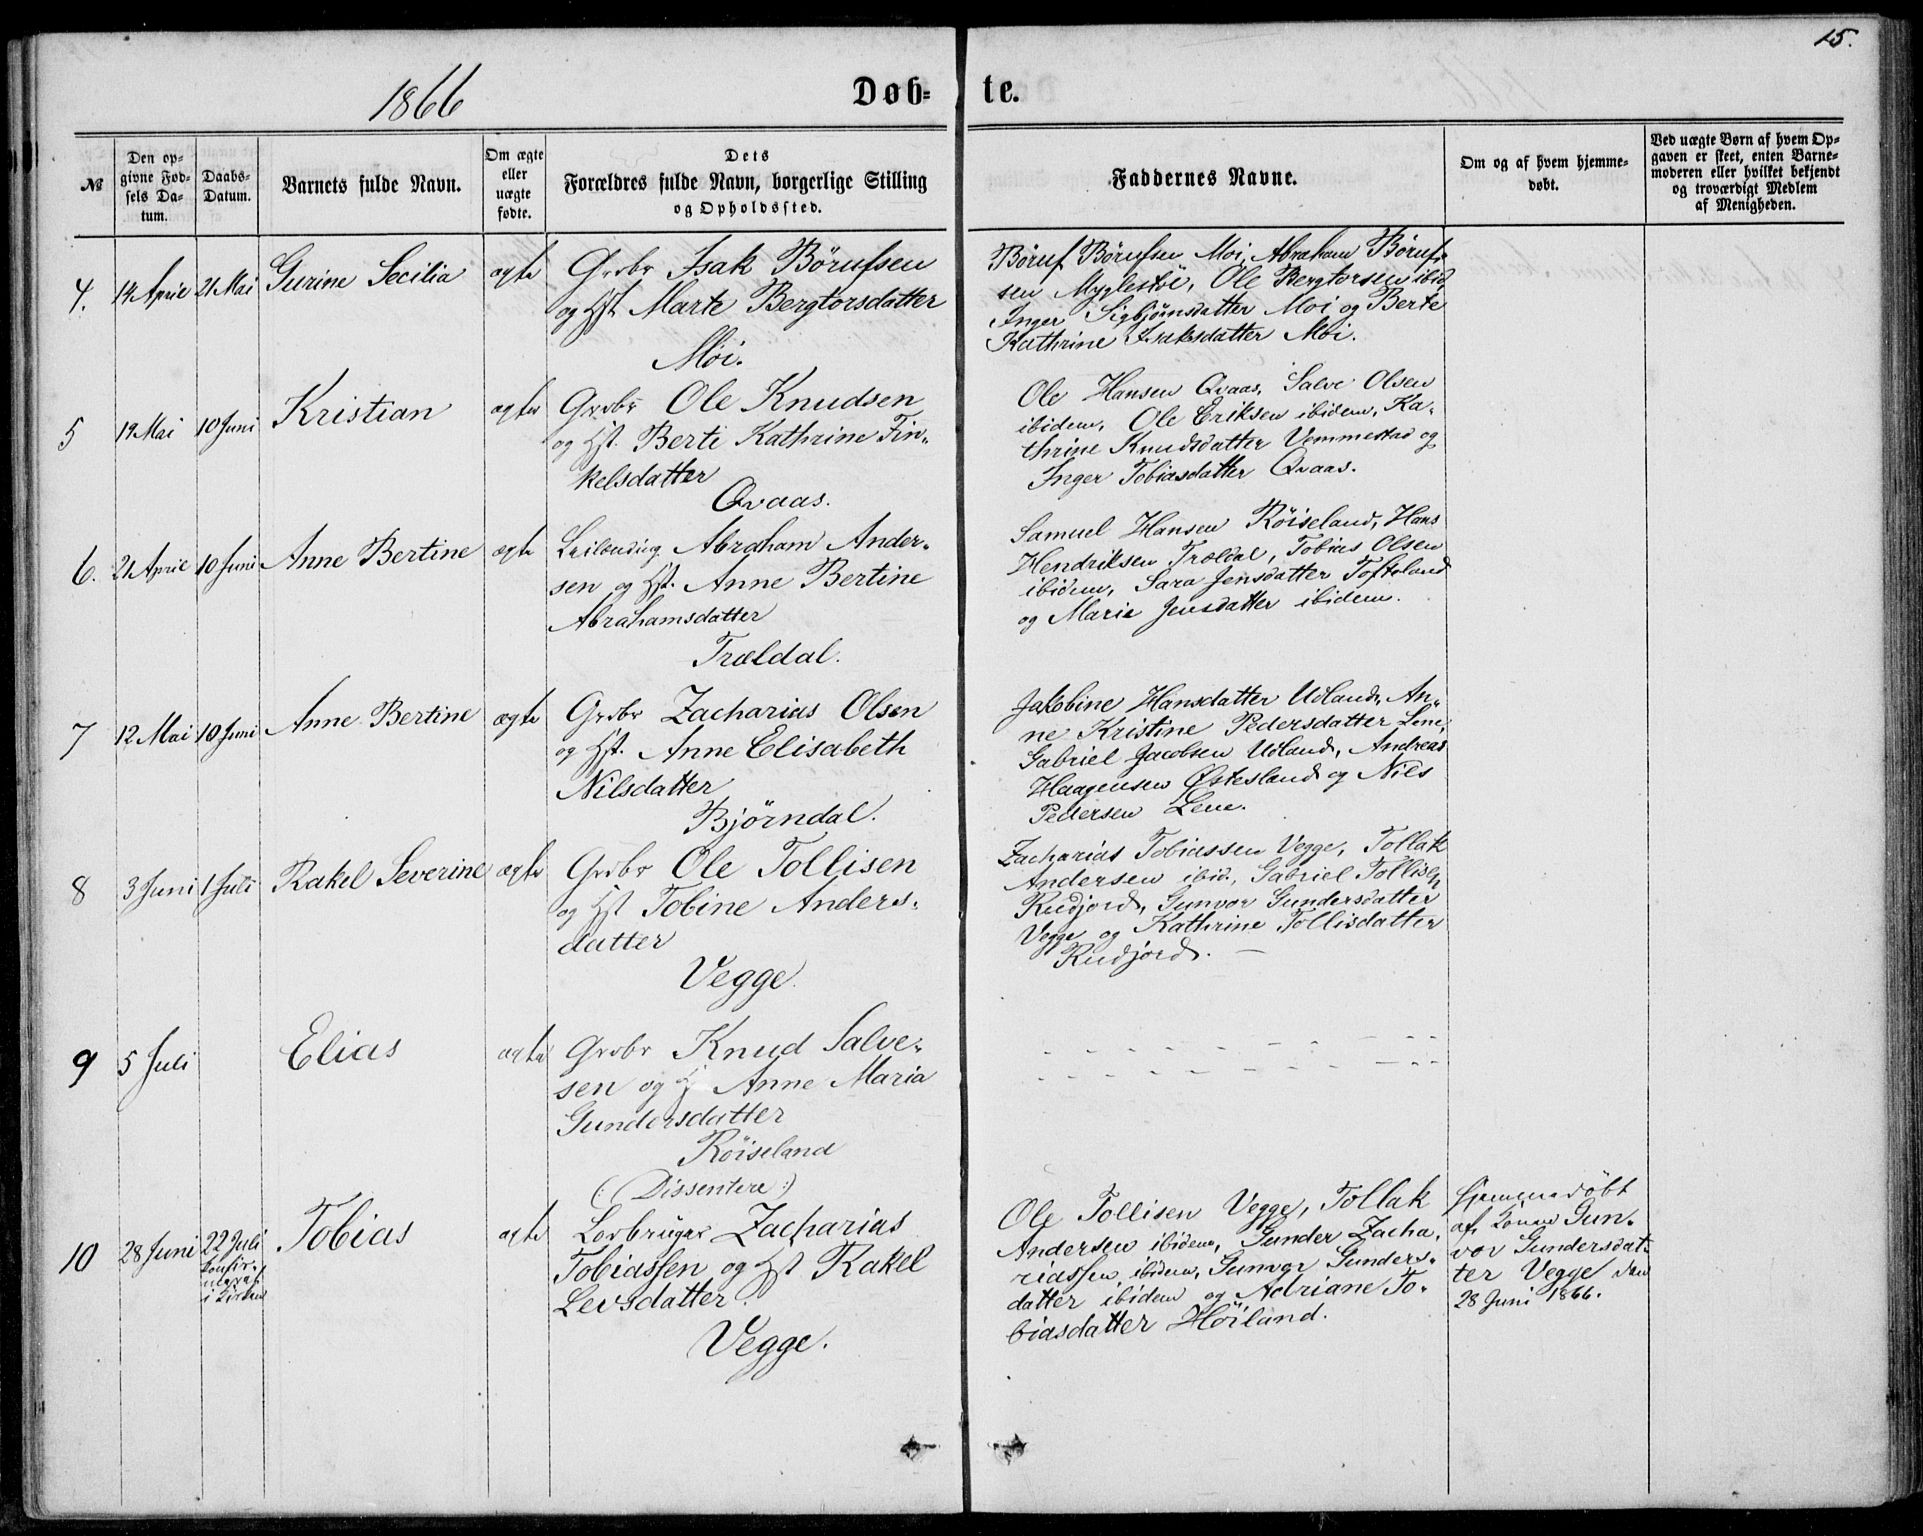 15.
1866
Døb-
te.
№
Den op-
givne Fød-
sels Da-
tum.
Daabs-
Datum.
Barnets fulde Navn.
Om ægte
eller
uægte
fødte.
Dets
Forældres fulde Navn, borgerlige Stilling
og Opholdssted.
Faddernes Navne.
Om og af hvem hjemme-
døbt.
Ved uægte Børn af hvem Op-
gaven er skeet, enten Barne-
moderen eller hvilket bekjendt
og troværdigt Medlem
af Menigheden.
4. 14 April 21 Mai Gurine Secilia ægte
Grdbr Isak Börufsen
og Hst Marte Bergtorsdatter
Möi.
Böruf Börufsen Moi, Abraham Böruf-
sen Myglestöi, Ole Bergtorsen ibid,
Inger Sigbjörnsdatter Moi og Berte
Kathrine Isaksdatter Möi.
5 19 Mai 10 Juni Kristian ægte
Grdbr Ole Knudsen
og Hst. Berte Kathrine Fin-
kelsdatter
Qvaas.
Ole Hansen Qvaas, Salve Olsen
ibidem, Ole Eriksen ibidem, Ka-
thrine Knudsdatter Vemmestad og
Inger Tobiasdatter Qvaas.
6. 21 April 10 Juni Anne Bertine ægte
Leilænding Abraham Ander-
sen og Hst. Anne Bertine
Abrahamsdatter
Trældal.
Samuel Hansen Röiseland, Hans
Hendriksen Trældal, Tobias Olsen
ibidem, Sara Jensdatter Tofteland
og Marie Jensdatter ibidem.
7 12 Mai 10 Juni Anne Bertine ægte
Grdbr Zacharias Olsen
og Hst. Anne Elisabeth
Nilsdatter
Björndal.
Jakobine Hansdatter Udland, An-
ne Kristine Pedersdatter Lene,
Gabriel Jacobsen Udland, Andreas
Haagensen Østesland og Nils
Pedersen Lene.
8 3 Juni 1 Juli Rakel Severine ægte
Grdbr Ole Tollisen
og Hst Tobine Anders-
datter
Vegge
Zacharias Tobiassen Vegge, Tollak
Andersen ibid., Gabriel Tollisen
Rudjord, Gunvor Gundersdatter
Vegge og Kathrine Tollisdatter
Rudjord. —
9 5 Juli Elias ægte
Grdbr Knud Salve-
sen og H Anne Maria
Gundersdatter
Röiseland
(: Dissentere :)
10 28 Juni 22 Juli
i Kirken
Tobias ægte
Lovbruger Zacharias
Tobiassen og Hst Rakel
Levsdatter
Vegge.
Ole Tollisen Vegge, Tollak
Andersen ibidem, Gunder Zacha-
riassen ibidem, Gunvor Gunders-
datter ibidem og Adriane To-
biasdatter Höiland.
Hjemmedöbt
af Konen Gun-
vor Gundersdat-
ter Vegge den
28 Juni 1866.